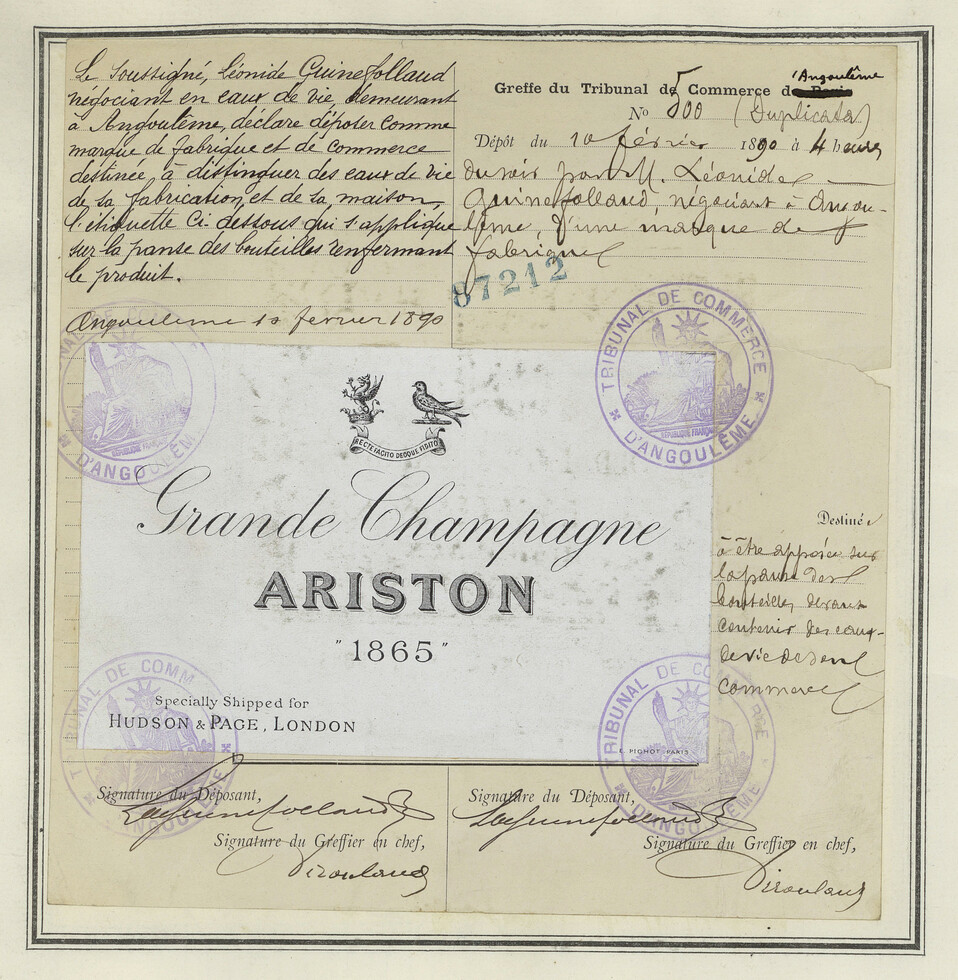 Le Soussigné, Léonide Guinefollaud
négociant en eaux de vie, demeurant
à Angoulême, déclare déposer comme
marque de fabrique et de commerce
destinée à distinguer des eaux de vie
de sa fabrication et de sa maison,
l'étiquette ci-dessous qui s'applique
sur la panse des bouteilles renfermant
le produit.
Angoulême 10 fevrier 1890
Greffe du Tribunal de Commerce d'Angoulême
No 500 (Duplicata)
Dépôt du 10 février 1890 à 4 heures
du soir par M. Léonide
Guinefollaud, négociant à Angou-
lême, d'une marque de
fabrique
87212
TRIBUNAL DE COMMERCE
D'ANGOULÊME
RÉPUBLIQUE FRANÇAISE
TRIBUNAL DE COMMERCE
D'ANGOULÊME
RÉPUBLIQUE FRANÇAISE
RECTE FACITO DEOQUE FIDITO
Grande Champagne
ARISTON
"1865"
Specially Shipped for
HUDSON & PAGE, LONDON
E. PICHOT PARIS
Destinée
à être apposée sur
la panse des
bouteilles devant
contenir des eaux-
de vie de son
commerce
TRIBUNAL DE COMM
D'ANGOULÊME
TRIBUNAL DE COMMERCE
D'ANGOULÊME
Signature du Déposant,
Signature du Greffier en chef,
Signature du Déposant,
Signature du Greffier en chef,